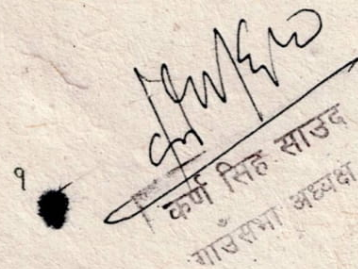 १
कर्ण सिंह साउद
गाउँसभा अध्यक्ष